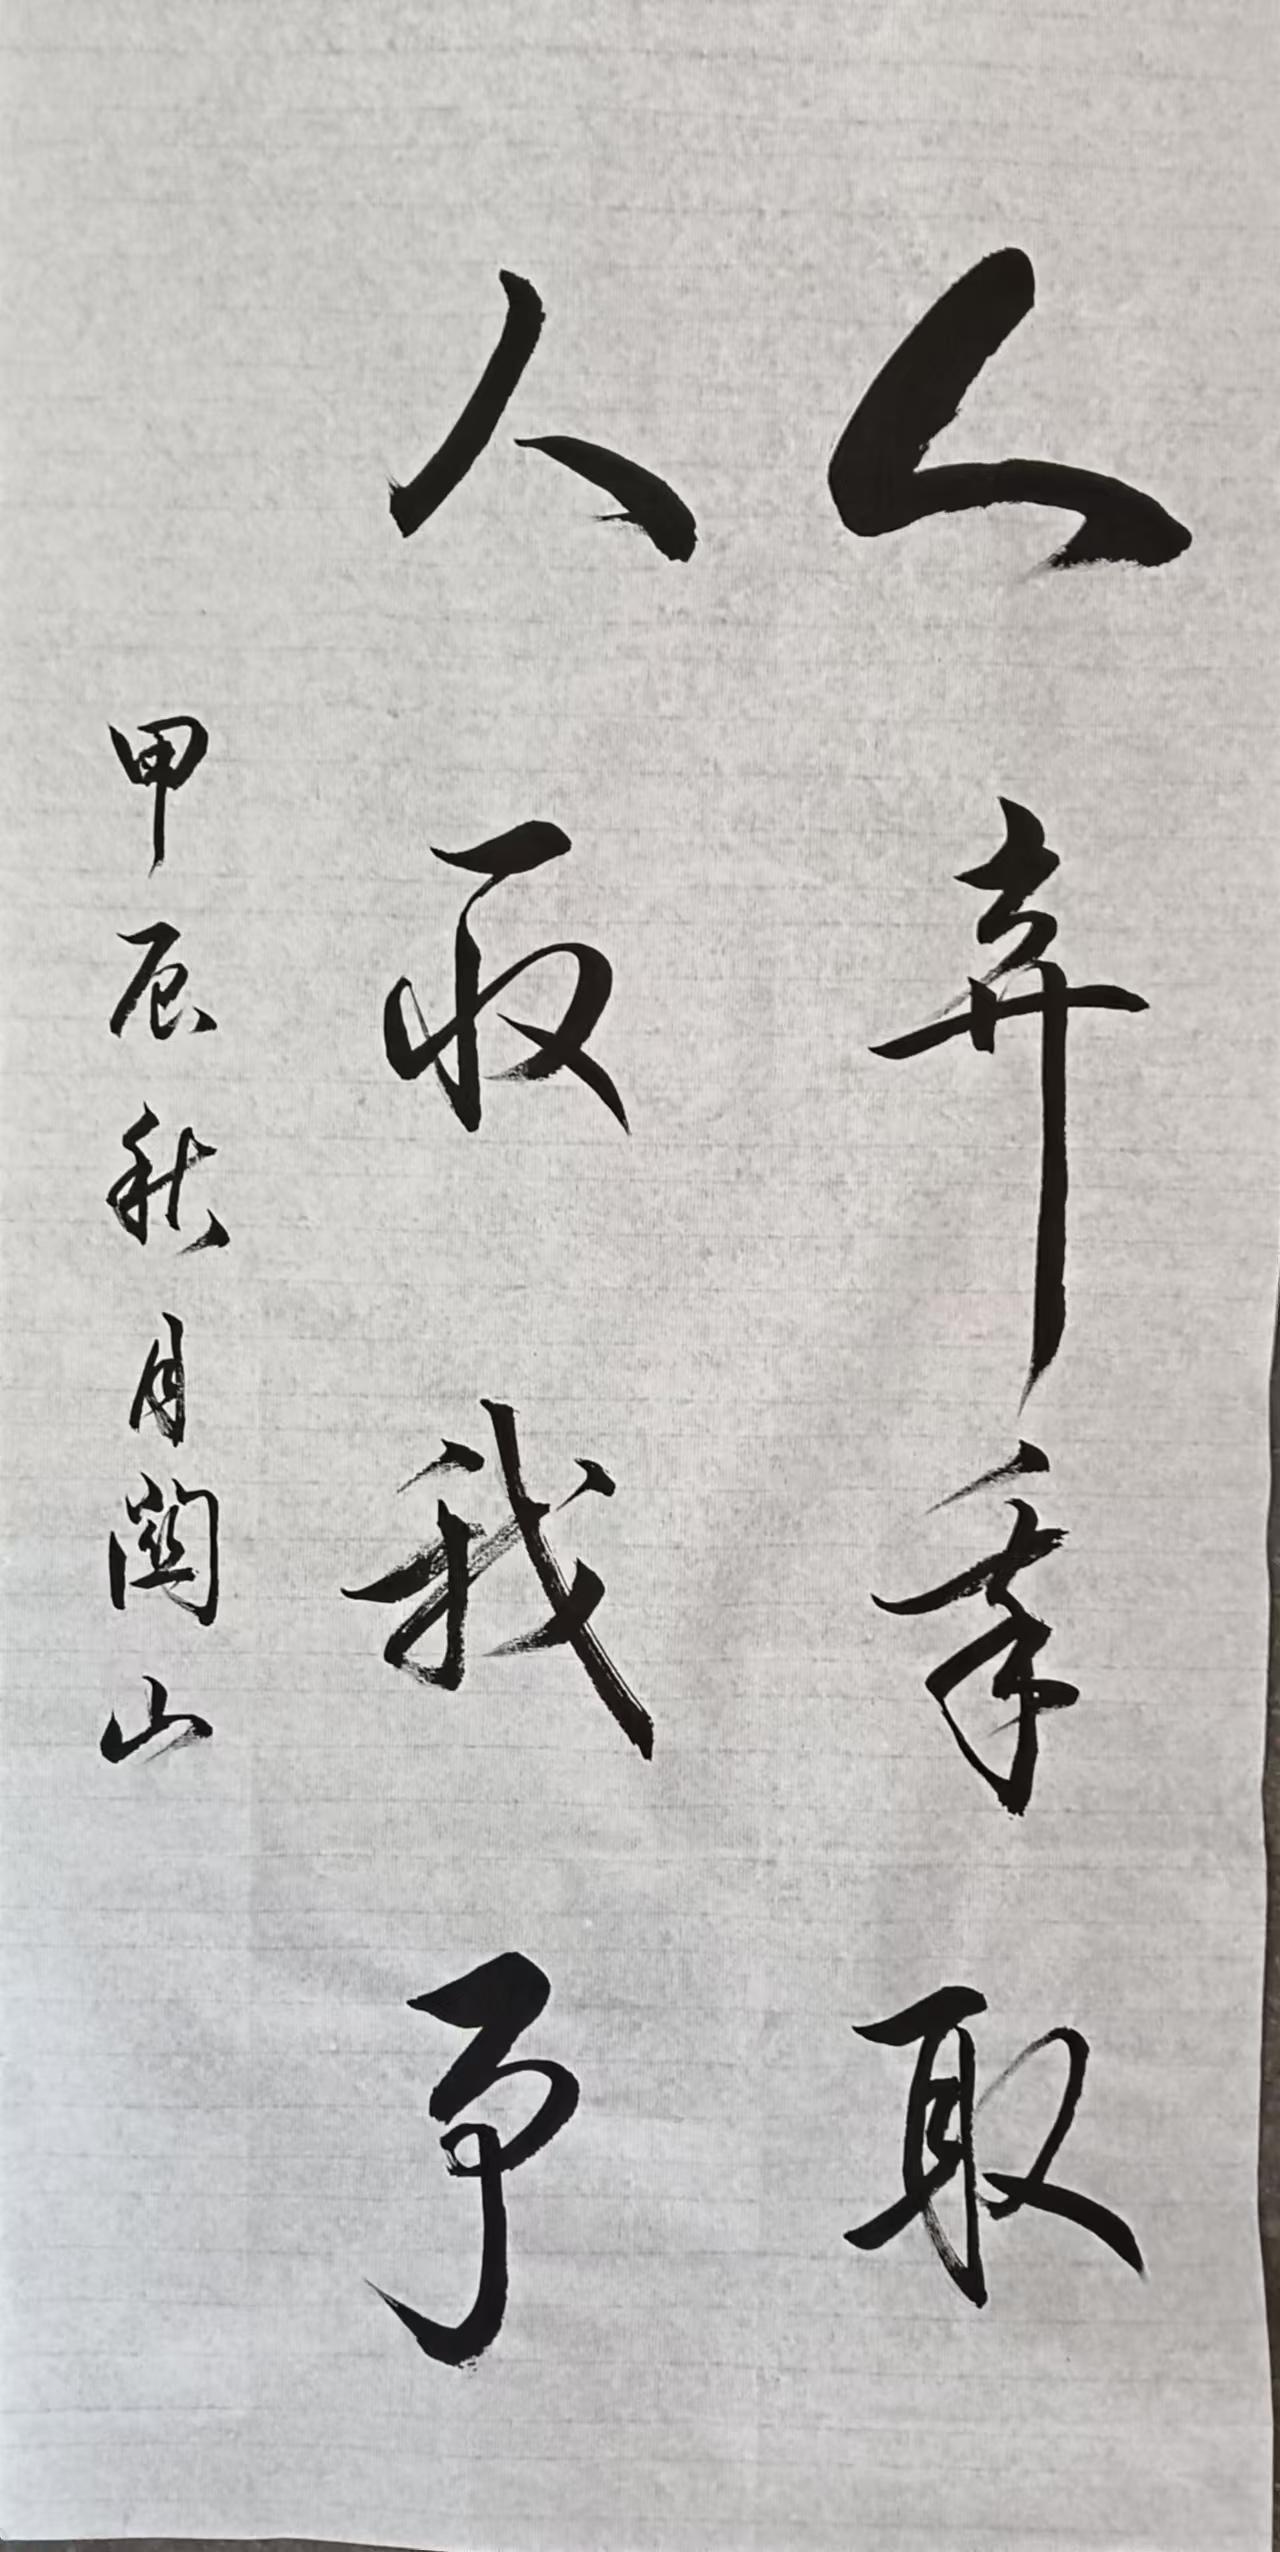 人弃我取
人取我予
甲辰秋月关山